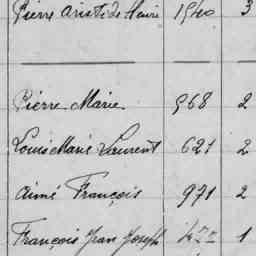 Pierre Aristide Henri 1540 3
Pierre Marie 568 2
Louis Marie Laurent 621 2
Aimé François 971 2
François Jean Joseph 1